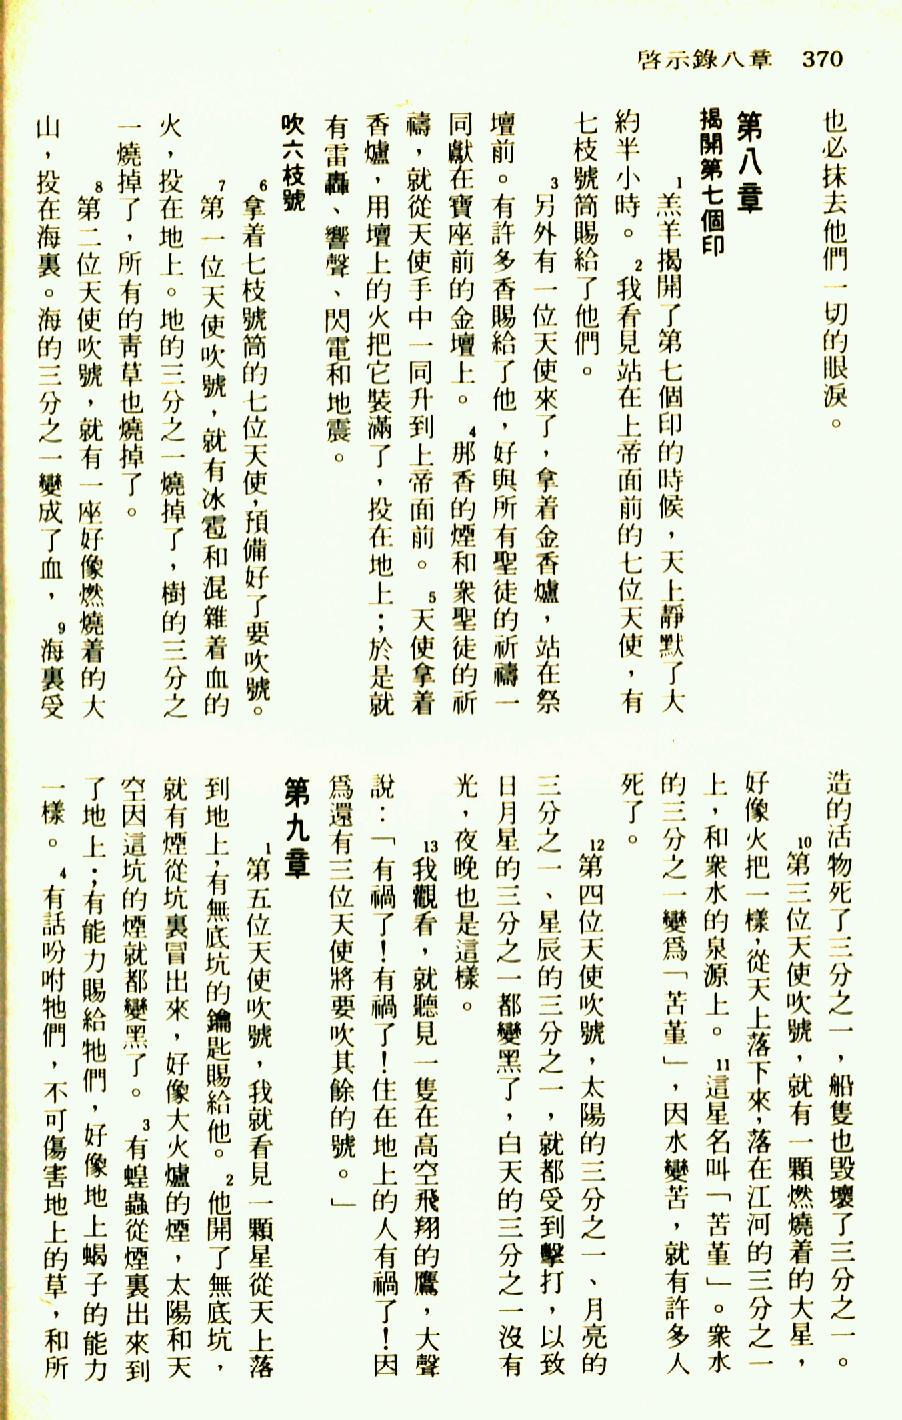 啓示錄八章 370
也必抹去他們一切的眼淚。
第八章
揭開第七個印
1羔羊揭開了第七個印的時候，天上靜默了大
約半小時。2我看見站在上帝面前的七位天使，有
七枝號筒賜給了他們。
3另外有一位天使來了，拿着金香爐，站在祭
壇前。有許多香賜給了他，好與所有聖徒的祈禱一
同獻在寶座前的金壇上。4那香的煙和衆聖徒的祈
禱，就從天使手中一同升到上帝面前。5天使拿着
香爐，用壇上的火把它裝滿了，投在地上；於是就
有雷轟、響聲、閃電和地震。
吹六枝號
6拿着七枝號筒的七位天使，預備好了要吹號。
7第一位天使吹號，就有冰雹和混雜着血的
火，投在地上。地的三分之一燒掉了，樹的三分之
一燒掉了，所有的靑草也燒掉了。
8第二位天使吹號，就有一座好像燃燒着的大
山，投在海裏。海的三分之一變成了血，9海裏受
造的活物死了三分之一，船隻也毀壞了三分之一。
10第三位天使吹號，就有一顆燃燒着的大星，
好像火把一樣，從天上落下來，落在江河的三分之一
上，和衆水的泉源上。11這星名叫「苦菫」。衆水
的三分之一變爲「苦菫」，因水變苦，就有許多人
死了。
12第四位天使吹號，太陽的三分之一、月亮的
三分之一、星辰的三分之一，就都受到擊打，以致
日月星的三分之一都變黑了，白天的三分之一沒有
光，夜晚也是這樣。
13我觀看，就聽見一隻在高空飛翔的鷹，大聲
說：「有禍了！有禍了！住在地上的人有禍了！因
爲還有三位天使將要吹其餘的號。」
第九章
1第五位天使吹號，我就看見一顆星從天上落
到地上，有無底坑的鑰匙賜給他。2他開了無底坑，
就有煙從坑裏冒出來，好像大火爐的煙，太陽和天
空因這坑的煙就都變黑了。3有蝗蟲從煙裏出來到
了地上；有能力賜給牠們，好像地上蝎子的能力
一樣。4有話吩咐牠們，不可傷害地上的草，和所